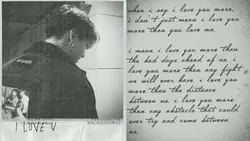 I LOVE U
when i say i love you more,
i don't just mean i love you
more than you love me.
i mean i love you more than
the bad days ahead of us, i
love you more than any fight
we will ever have, i love you
more than the distance
between us, i love you more
than any obstacle that could
ever try and come between
us.